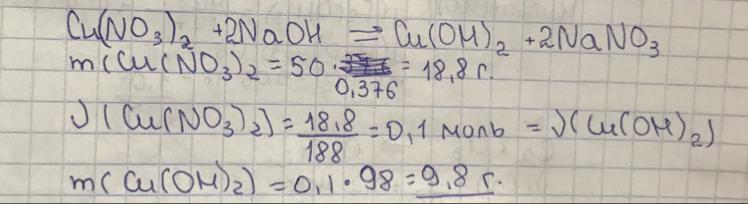 Cu(NO3)2 +2NaOH = Cu(OH)2 +2NaNO3
m(Cu(NO3)2 = 50 · 0,376 = 18,8 г.
ν(Cu(NO3)2) = 18,8/188 = 0,1 моль = ν(Cu(OH)2)
m(Cu(OH)2) = 0,1 · 98 = 9,8 г.